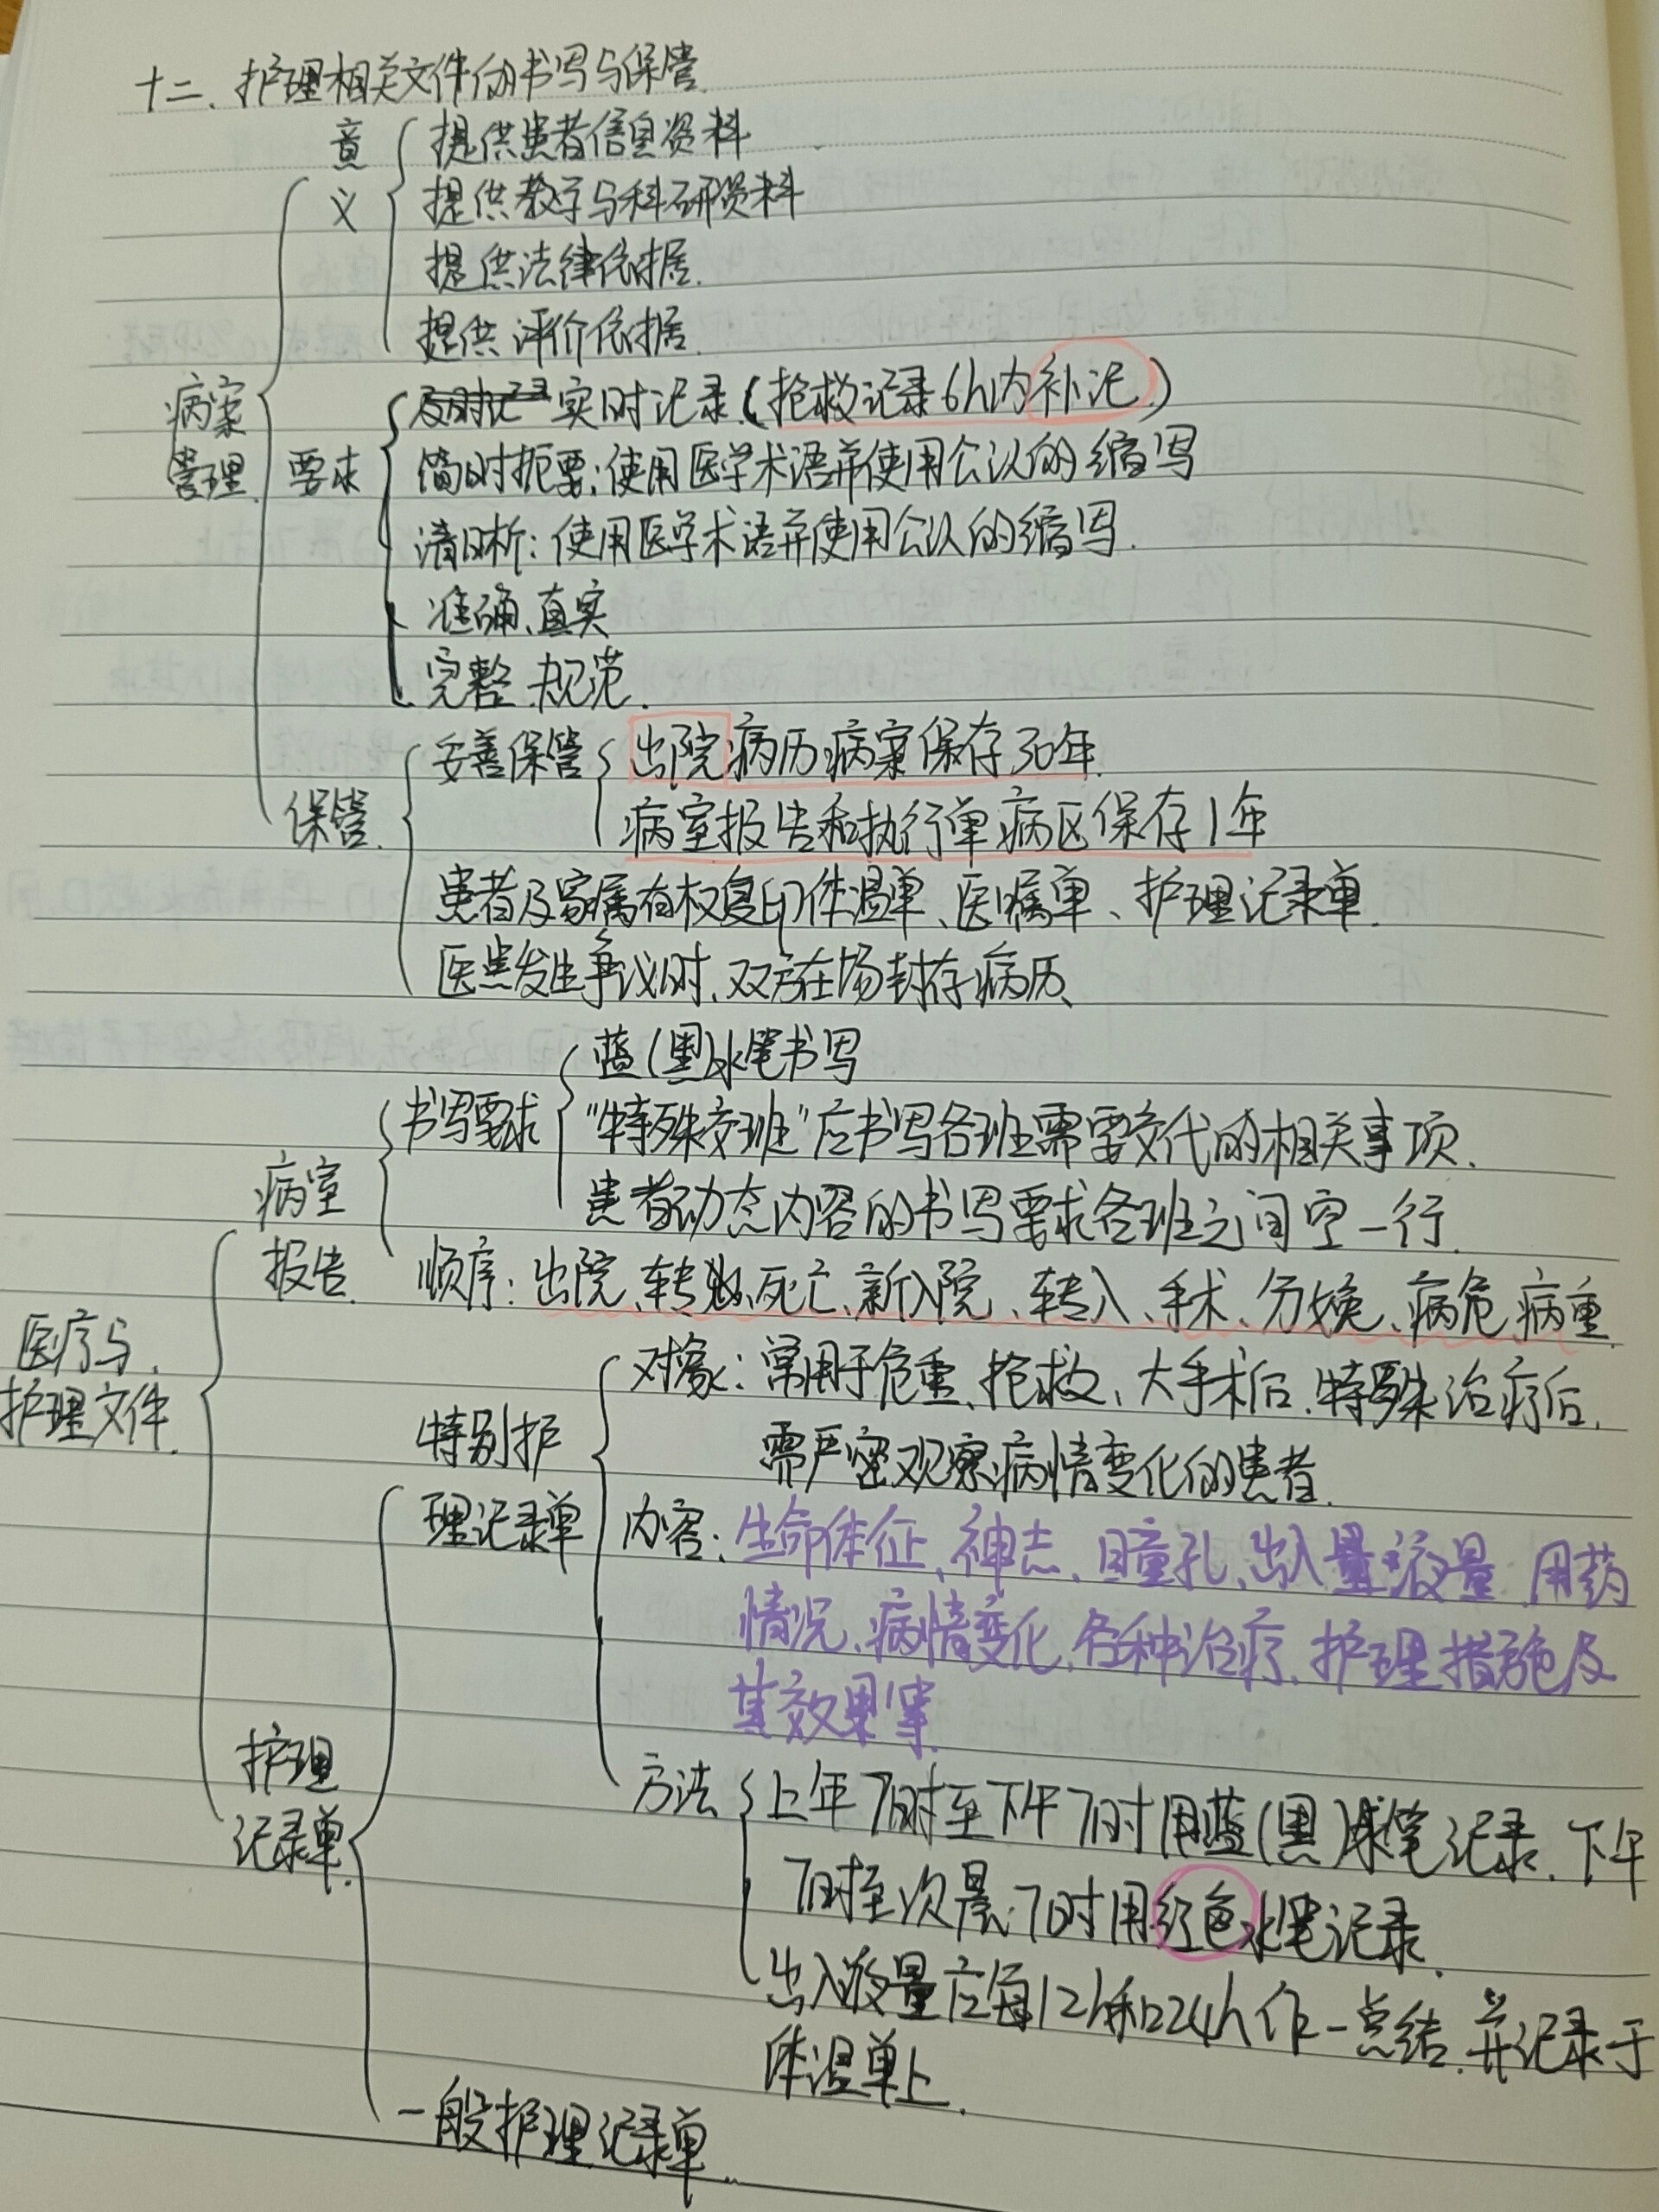 十二、护理相关文件的书写与保管
意义
提供患者信息资料
提供教学与科研资料
提供法律依据.
提供评价依据.
病案管理.
要求
及时记录 实时记录.(抢救记录6h内补记.)
简明扼要:使用医学术语并使用公认的缩写
清晰:使用医学术语并使用公认的缩写.
准确、真实
完整.规范.
保管.
妥善保管
出院病历病案保存30年.
病室报告和执行单病区保存1年
患者及家属有权复印体温单、医嘱单、护理记录单.
医患发生争议时,双方在场封存病历、
医疗与护理文件.
病室报告.
书写要求
蓝(黑)水笔书写
“特殊交班”应书写各班需要交代的相关事项.
患者动态内容的书写要求各班之间空一行.
顺序:出院、转出、死亡、新入院、转入、手术、分娩、病危、病重.
护理记录单.
特别护理记录单
对象:常用于危重、抢救、大手术后、特殊治疗后.
需严密观察病情变化的患者.
内容:生命体征、神志、瞳孔、出入液量、用药
情况、病情变化、各种治疗、护理措施及
其效果等.
方法
上午7时至下午7时用蓝(黑)水笔记录.下午
7时至次晨7时用红色水笔记录.
出入液量应每12h和24h作一总结.并记录于
体温单上.
一般护理记录单.